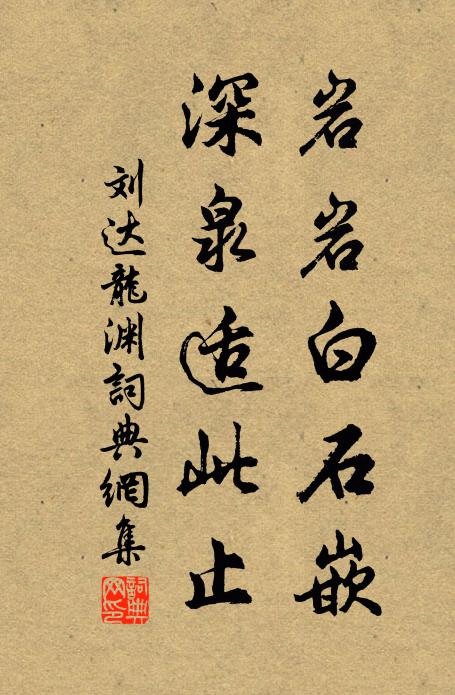 岩岩白石嵌
深泉适此止
刘达龍渊詞典網集
詞典网印